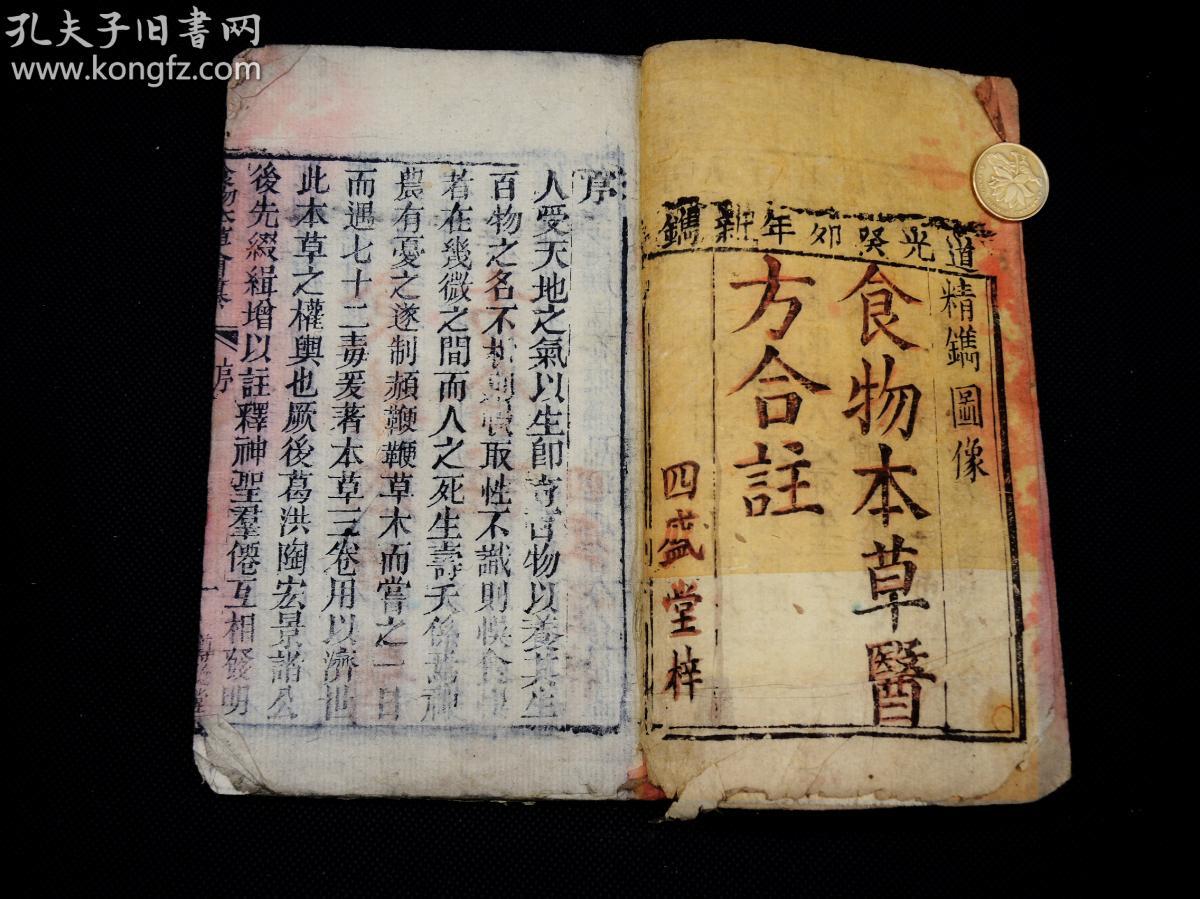 孔夫子旧书网
www.kongfz.com
道光癸卯年新鐫
精鐫圖像
食物本草醫
方合註
四盛堂梓
序
人受天地之氣以生即寺百物以養其生
百物之名不核則取性不識則悞食
者在幾微之間而人之死生壽夭係焉神
農有憂之遂制頳鞭鞭草木而嘗之一日
而遇七十二毒爰著本草三卷用以濟世
此本草之權輿也厥後葛洪陶宏景諸公
後先綴緝增以註釋神聖羣僊互相發明
食物本草會纂
序
一